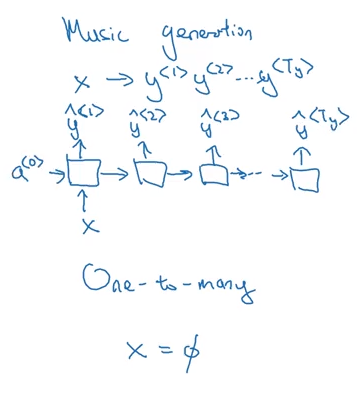 Music generation
x → y<1> y<2> ... y<Ty>
ŷ<1> ŷ<2> ŷ<3> ŷ<Ty>
a<0> → → → → -- →
x
One-to-many
x = ϕ